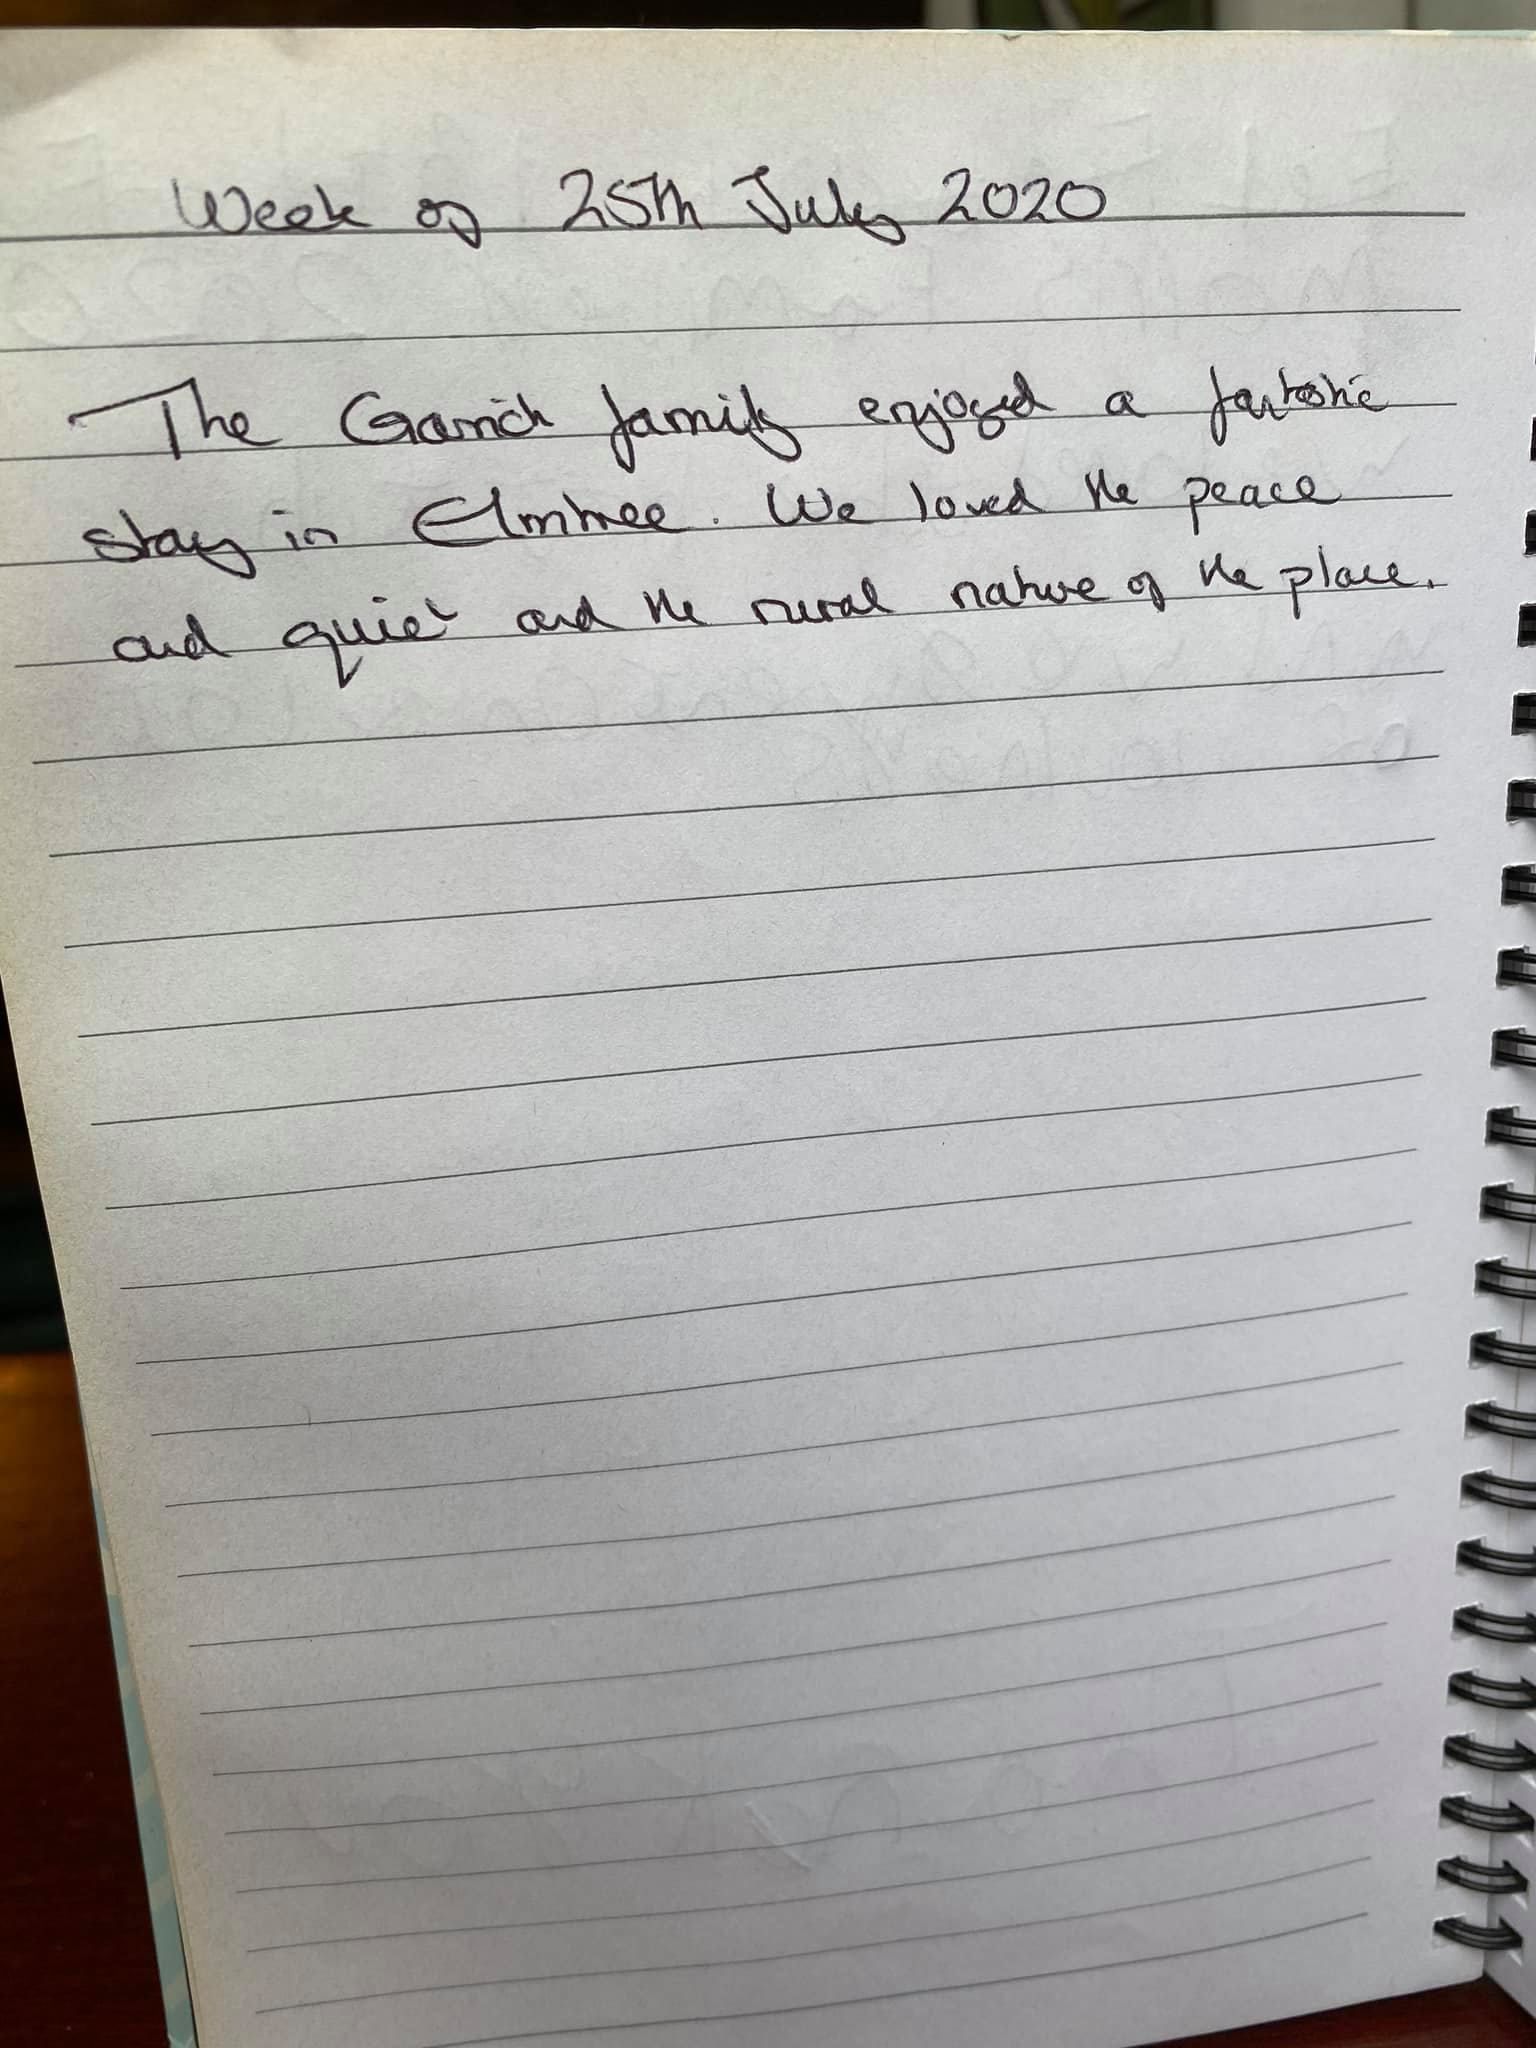 Week of 25th July 2020
The family enjoyed a fantastic
stay in Elmtree. We loved the peace
and quiet and the rural nature of the place.